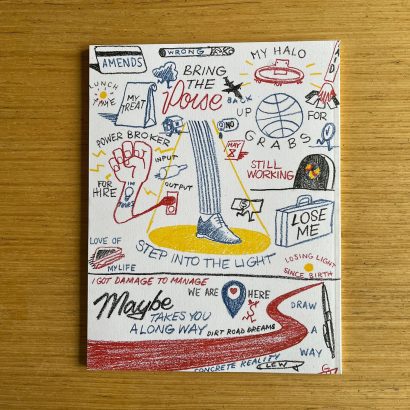 AMENDS
WRONG
MY HALO
BRING
THE
Poise
LUNCH
TIME
MY
TREAT
BACK
UP
FOR
GRABS
NO
POWER BROKER
INPUT
MAY
FOR
HIRE
OUTPUT
STILL
WORKING
LOSE
ME
LOVE OF
MY LIFE
STEP INTO THE LIGHT
LOSING LIGHT
SINCE BIRTH
I GOT DAMAGE TO MANAGE
WE ARE
HERE
Maybe
TAKES YOU
A LONG WAY
DIRT ROAD DREAMS
DRAW
A
WAY
CONCRETE REALITY
LEW